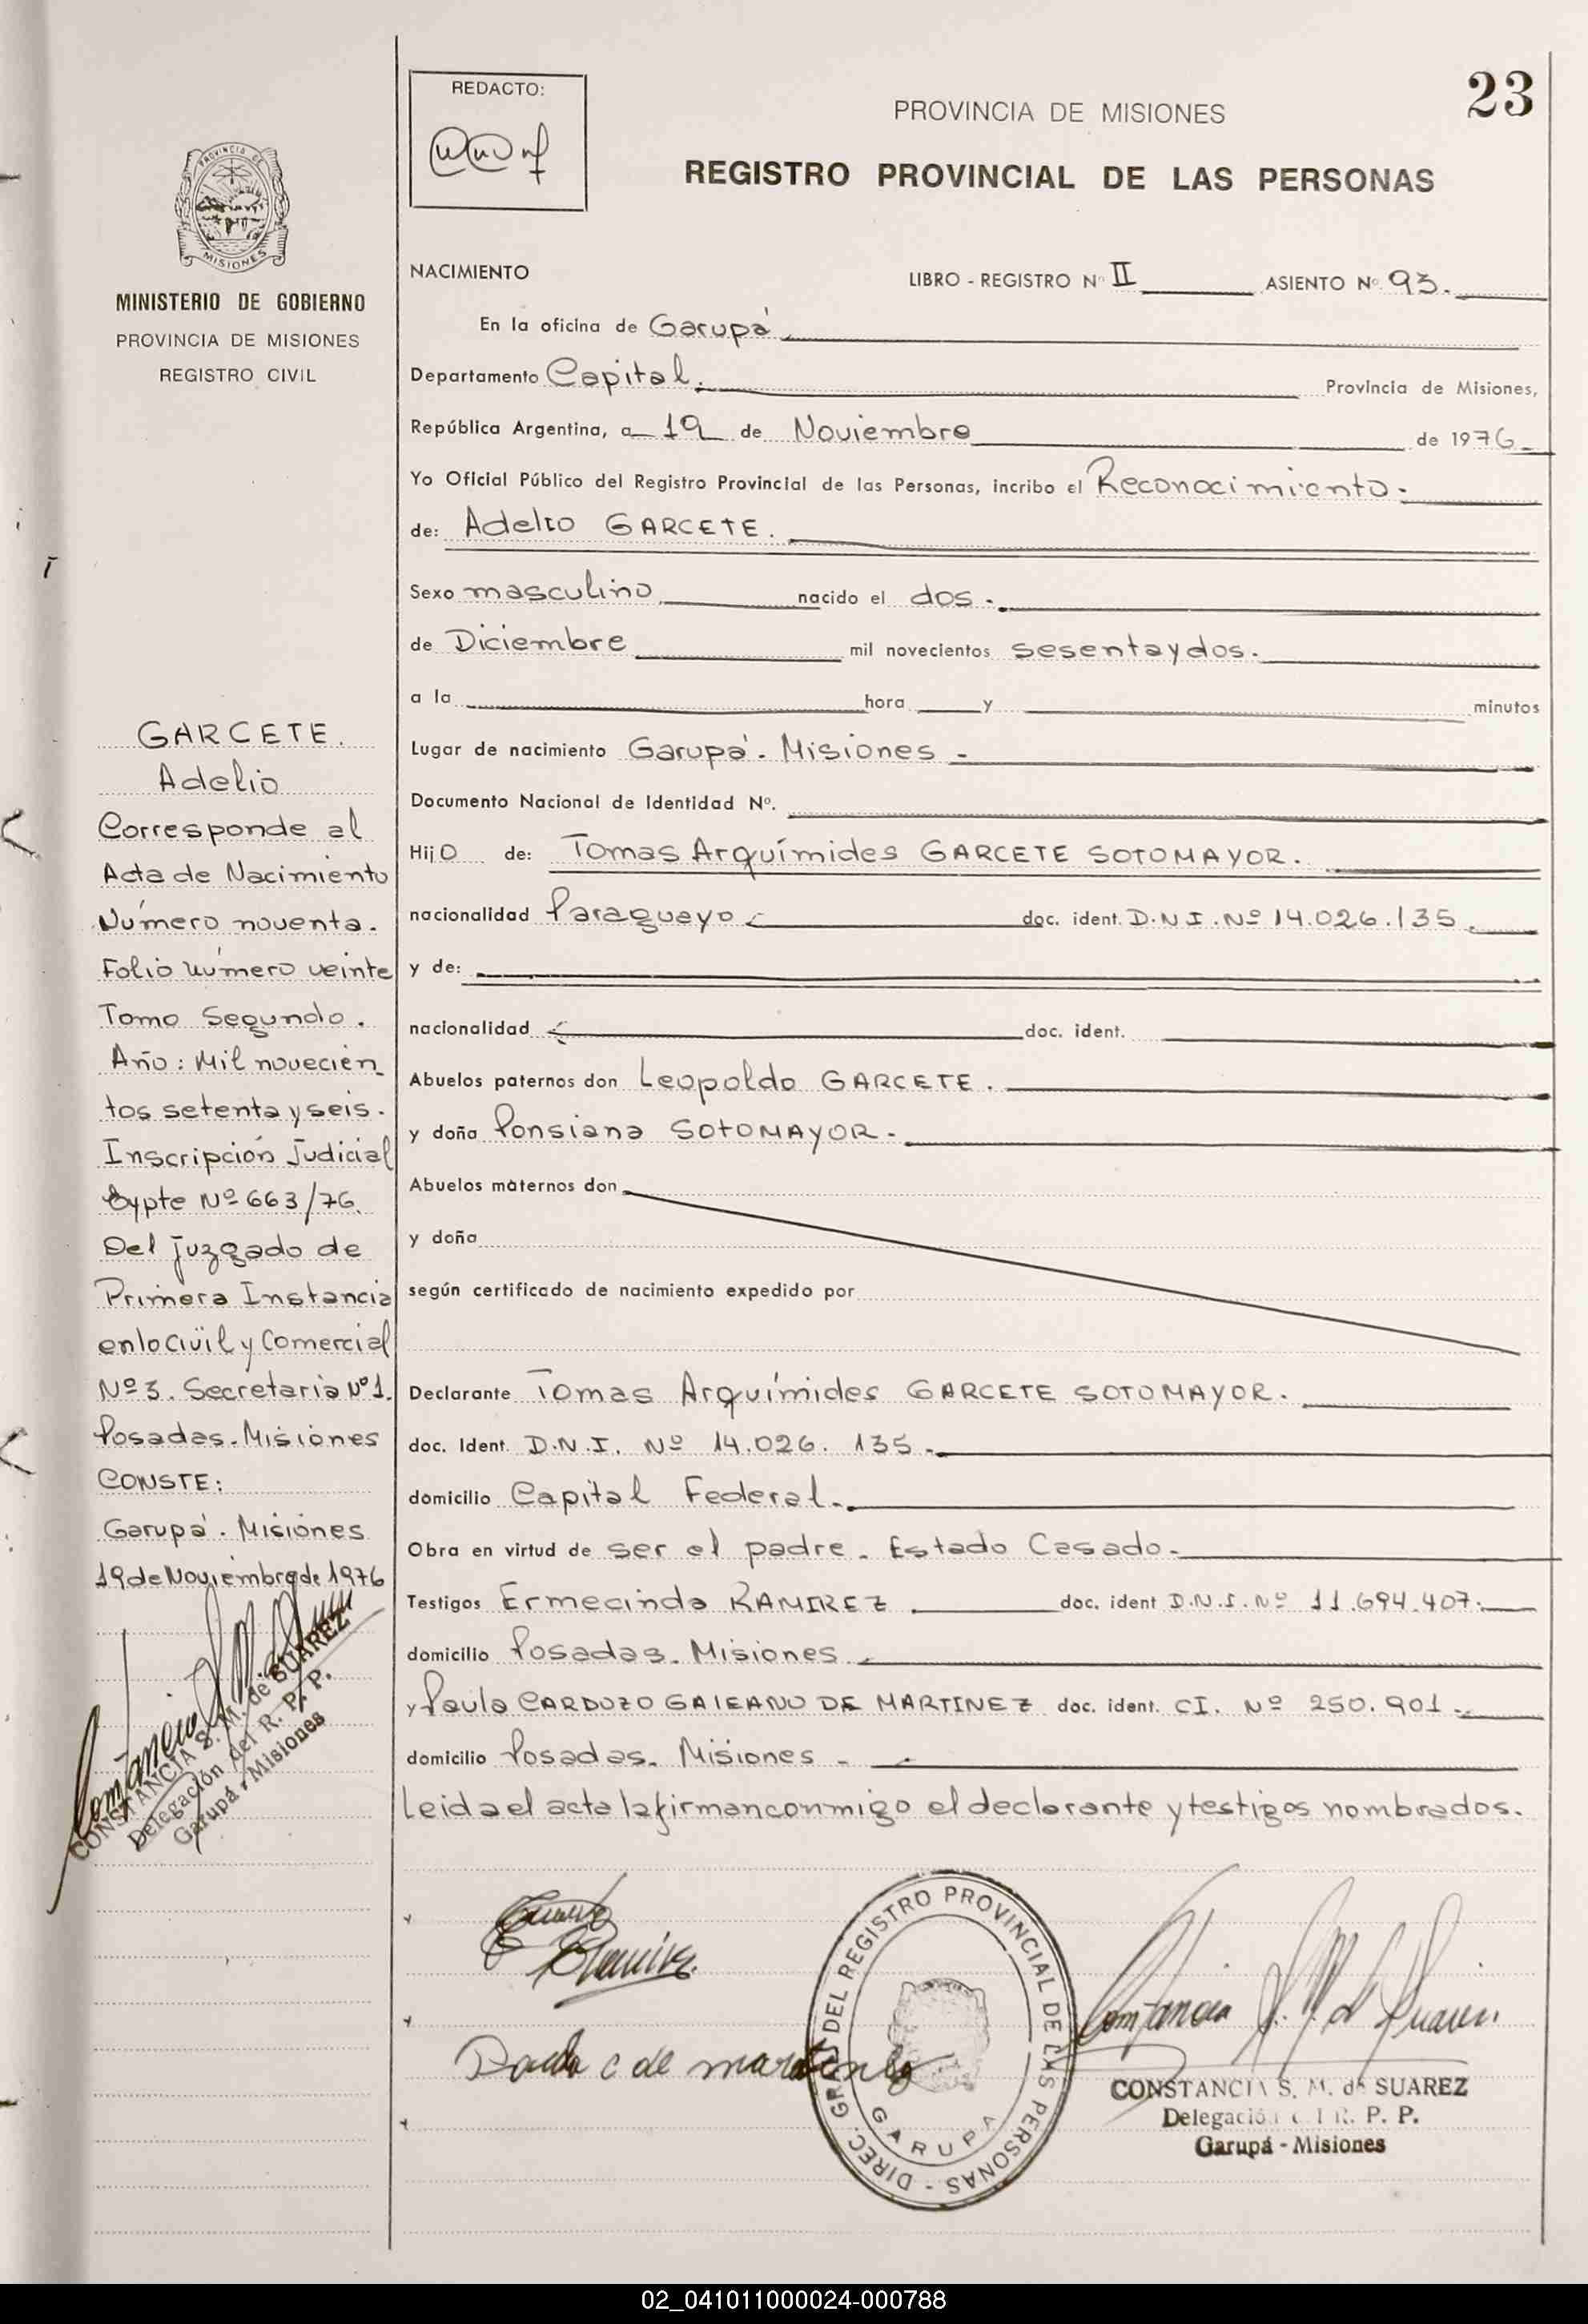 23
REDACTO:
PROVINCIA DE MISIONES
REGISTRO PROVINCIAL DE LAS PERSONAS
PROVINCIA DE
MISIONES
MINISTERIO DE GOBIERNO
PROVINCIA DE MISIONES
REGISTRO CIVIL
GARCETE.
Adelio
Corresponde al
Acta de Nacimiento
Número noventa.
Folio número veinte
Tomo Segundo.
Año: Mil novecien
tos setenta y seis.
Inscripción Judicial
Eypte Nº 663/76.
Del juzgado de
Primera Instancia
en lo Civil y Comercial
Nº 3. Secretaria Nº 1.
Posadas. Misiones
CONSTE:
Garupá. Misiones
19 de Noviembre de 1976
CONSTANCIA S. M. de SUAREZ
Delegación del R. P. P.
Garupá - Misiones
NACIMIENTO LIBRO - REGISTRO Nº II ASIENTO Nº 93.
En la oficina de Garupá
Departamento Capital. Provincia de Misiones,
República Argentina, a 19 de Noviembre de 1976
Yo Oficial Público del Registro Provincial de las Personas, incribo el Reconocimiento.
de: Adelio GARCETE.
Sexo masculino nacido el dos.
de Diciembre mil novecientos sesentaydos.
a la hora y minutos
Lugar de nacimiento Garupá. Misiones
Documento Nacional de Identidad Nº.
Hijo de: Tomas Arquímides GARCETE SOTOMAYOR.
nacionalidad Paraguayo doc. ident. D.N.I. Nº 14.026.135
y de:
nacionalidad doc. ident.
Abuelos paternos don Leopoldo GARCETE.
y doña Ponsiana SOTOMAYOR.
Abuelos maternos don
y doña
según certificado de nacimiento expedido por
Declarante Tomas Arquímides GARCETE SOTOMAYOR.
doc. Ident. D.N.I. Nº 14.026.135.
domicilio Capital Federal.
Obra en virtud de ser el padre. Estado Casado.
Testigos Ermecinda RAMIREZ doc. ident D.N.I. Nº 11.694.407.
domicilio Posadas. Misiones
y Paula CARDOZO GALEANO DE MARTINEZ doc. ident. CI. Nº 250.901
domicilio Posadas. Misiones
Leida el acta la firman conmigo el declarante y testigos nombrados.
Ramirez
Paula C de martinez
DIREC. GRAL. DEL REGISTRO PROVINCIAL DE LAS PERSONAS -
GARUPA
Constancia S. M. de Suarez
CONSTANCIA S. M. de SUAREZ
Delegación del R. P. P.
Garupá - Misiones
02_041011000024-000788